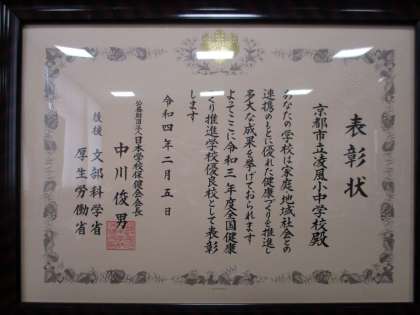 表彰状
京都市立凌風小中学校殿
あなたの学校は家庭、地域社会との
連携のもとに優れた健康づくりを推進し
多大な成果を挙げておられます
よってここに令和三年度全国健康
づくり推進学校優良校として表彰
します
令和四年二月五日
公益財団法人日本学校保健会会長
中川俊男
後援 文部科学省
厚生労働省